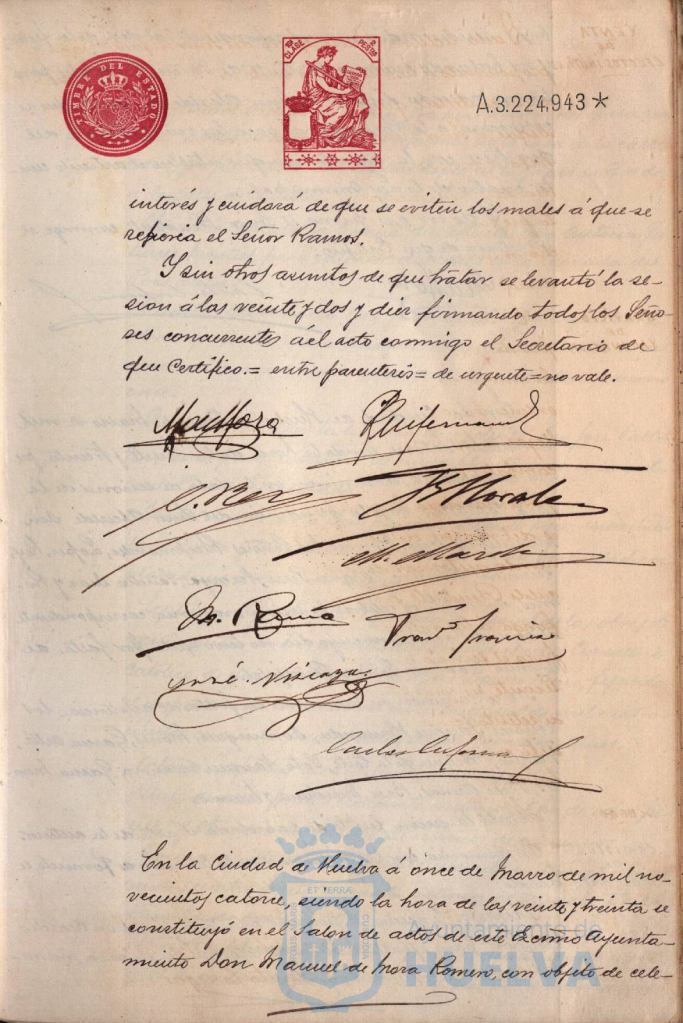 TIMBRE DEL ESTADO
CLASE
PESETAS
A.3.224,943*
interés y cuidará de que se eviten los males á que se
referia el Señor Ramos.
Y sin otros asuntos de que tratar se levantó la se-
sion á las veinte y dos y diez firmando todos los Seño-
res concurrentes á el acto conmigo el Secretario de
que Certifico.= entre parenteris= de urgente= no vale.
M de Mora
José Vizcaya
En la Ciudad de Huelva á once de Marzo de mil no-
vecientos catorce, siendo la hora de las veinte y treinta se
constituyó en el Salon de actos de este Excmo Ayunta-
miento Don Manuel de Mora Romero, con objeto de cele-
Ayuntamiento de
HUELVA